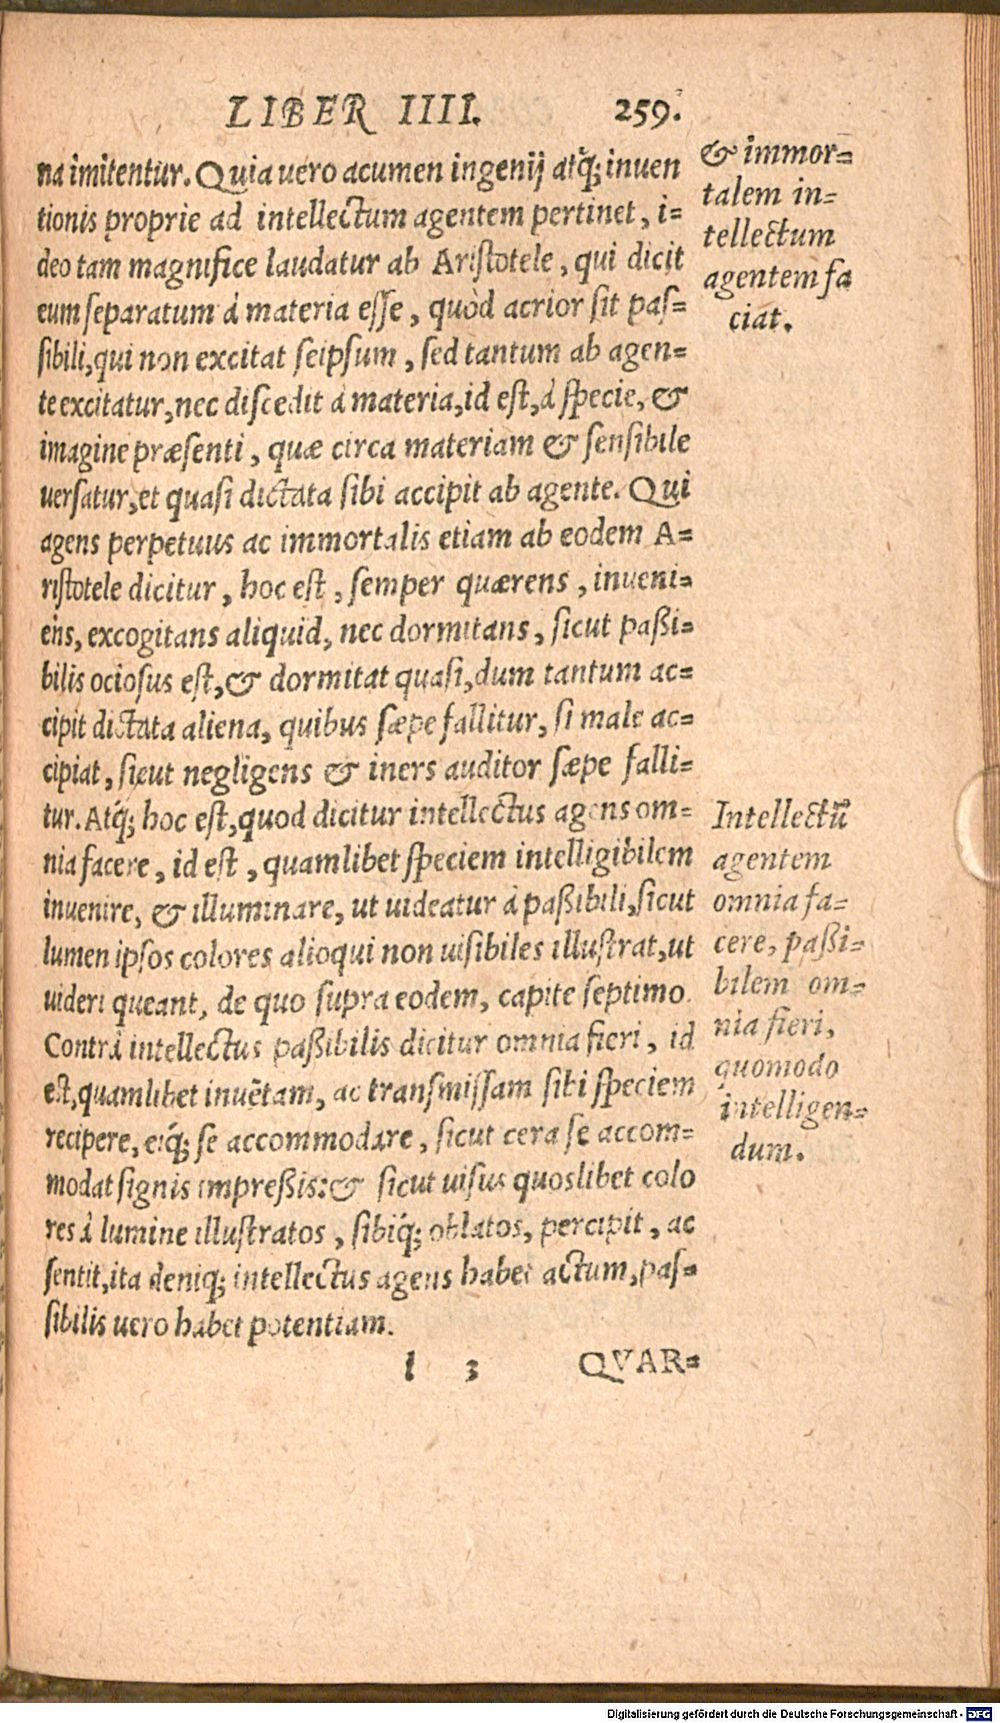 LIBER IIII. 259.
na imitentur. Quia uero acumen ingenij atq́; inuen
tionis proprie ad intellectum agentem pertinet, i-
deo tam magnifice laudatur ab Aristotele, qui dicit
eum separatum à materia esse, quòd acrior sit pas-
sibili, qui non excitat seipsum, sed tantum ab agen-
te excitatur, nec discedit à materia, id est, à specie, &
imagine præsenti, quæ circa materiam & sensibile
uersatur, et quasi dictata sibi accipit ab agente. Qui
agens perpetuus ac immortalis etiam ab eodem A-
ristotele dicitur, hoc est, semper quærens, inueni-
ens, excogitans aliquid, nec dormitans, sicut paßi-
bilis ociosus est, & dormitat quasi, dum tantum ac-
cipit dictata aliena, quibus sæpe fallitur, si male ac-
cipiat, sicut negligens & iners auditor sæpe falli-
tur. Atq́; hoc est, quod dicitur intellectus agens om-
nia facere, id est, quamlibet speciem intelligibilem
inuenire, & illuminare, ut uideatur à paßibili, sicut
lumen ipsos colores alioqui non uisibiles illustrat, ut
uideri queant, de quo supra eodem, capite septimo.
Contrà intellectus paßibilis dicitur omnia fieri, id
est, quamlibet inuẽtam, ac transmissam sibi speciem
recipere, eiq́; se accommodare, sicut cera se accom-
modat signis impreßis: & sicut uisus quoslibet colo
res à lumine illustratos, sibiq́; oblatos, percipit, ac
sentit, ita deniq; intellectus agens habet actum, pas-
sibilis uero habet potentiam.
l 3 QVAR-
& immor-
talem in-
tellectum
agentem fa
ciat.
Intellectũ
agentem
omnia fa-
cere, paßi-
bilem om-
nia fieri,
quomodo
intelligen-
dum.
Digitalisierung gefördert durch die Deutsche Forschungsgemeinschaft - DFG